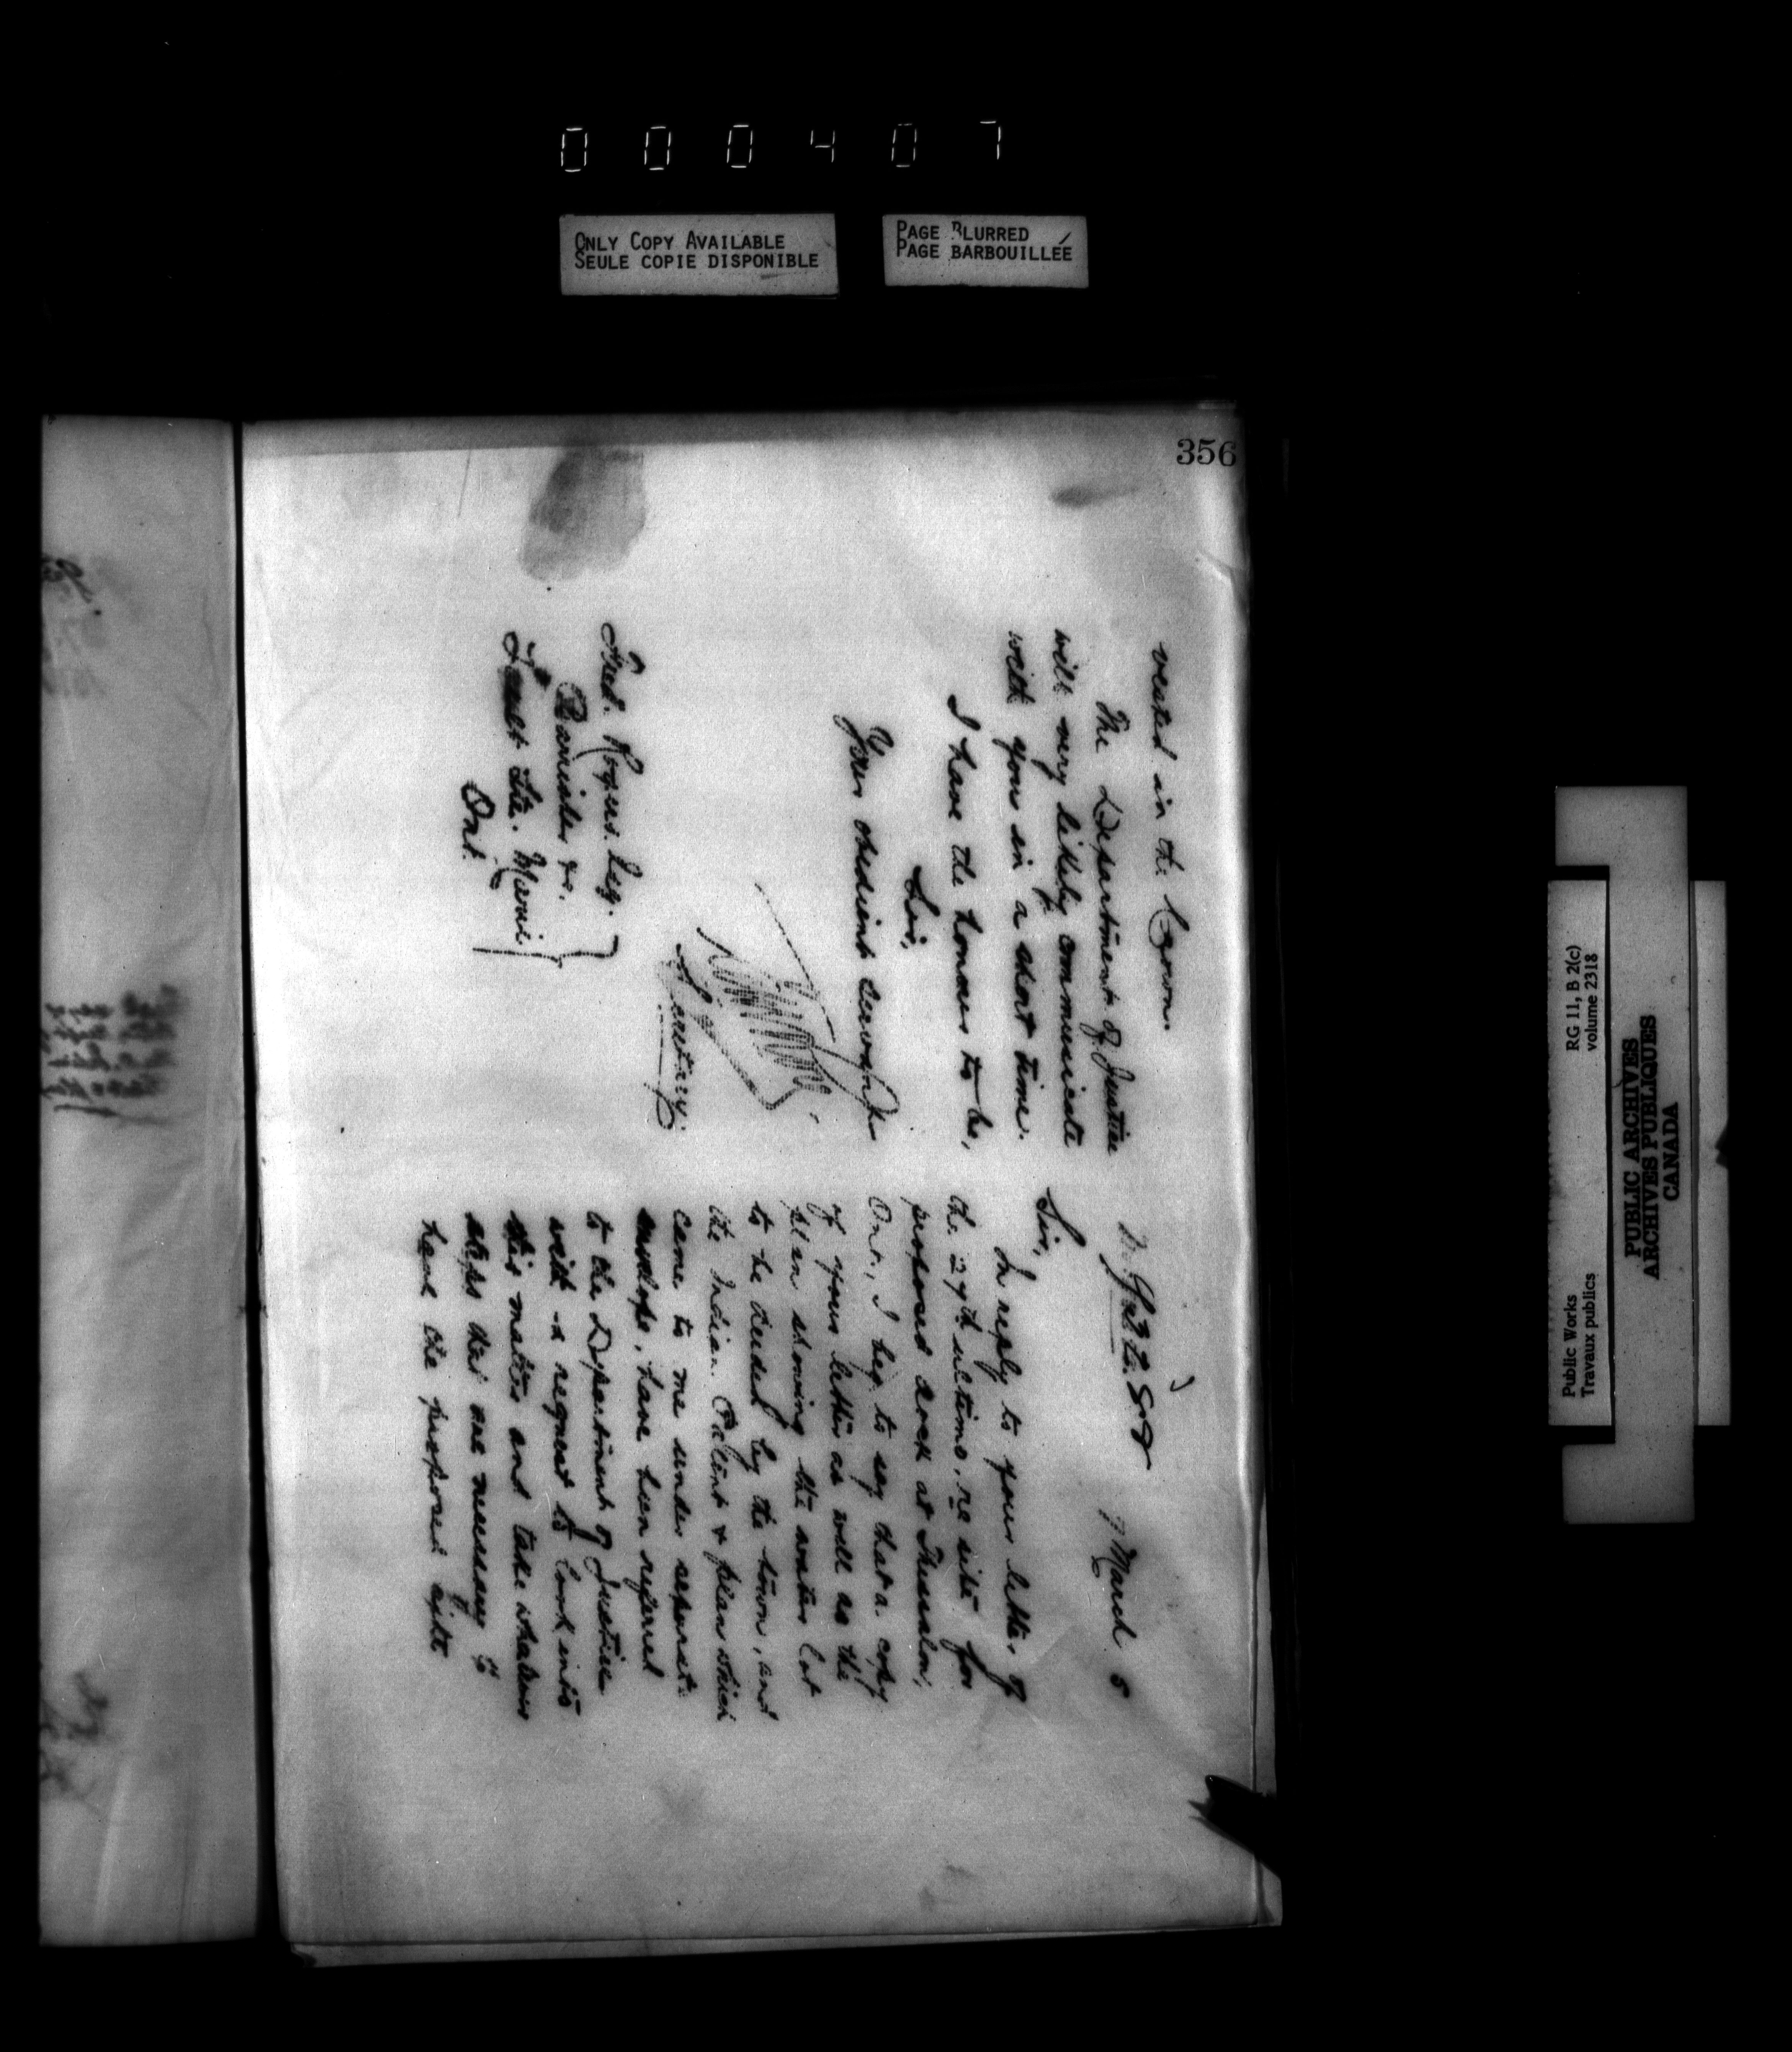 000407
ONLY COPY AVAILABLE
SEULE COPIE DISPONIBLE
PAGE BLURRED
PAGE BARBOUILLÉE
356
vested in the Crown.
The Department of Justice
will very likely communicate
with you in a short time.
I have the honour to be,
Sir,
Your obedient servant
Secretary.
Fred. Rogers. Esq.
Barrister &c.
Sault Ste. Marie
Ont.
7 March 5
Sir,
In reply to your letter of
the 27th ultimo, re site for
proposed dock at Thessalon,
Ont., I beg to say that a copy
of your letter as well as the
plan showing the water lot
to be deeded by the town, and
the Indian Patent & plan which
came to me under separate
envelope, have been referred
to the Department of Justice
with a request to look into
this matter and take whatever
steps that are necessary to
have the proposed site
Public Works
Travaux publics
RG 11, B 2(c)
volume 2318
PUBLIC ARCHIVES
ARCHIVES PUBLIQUES
CANADA